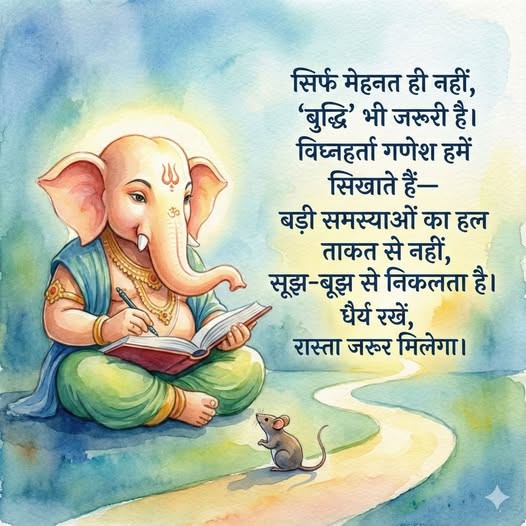 सिर्फ मेहनत ही नहीं,
‘बुद्धि’ भी जरूरी है।
विघ्नहर्ता गणेश हमें
सिखाते हैं—
बड़ी समस्याओं का हल
ताकत से नहीं,
सूझ-बूझ से निकलता है।
धैर्य रखें,
रास्ता जरूर मिलेगा।
ॐ